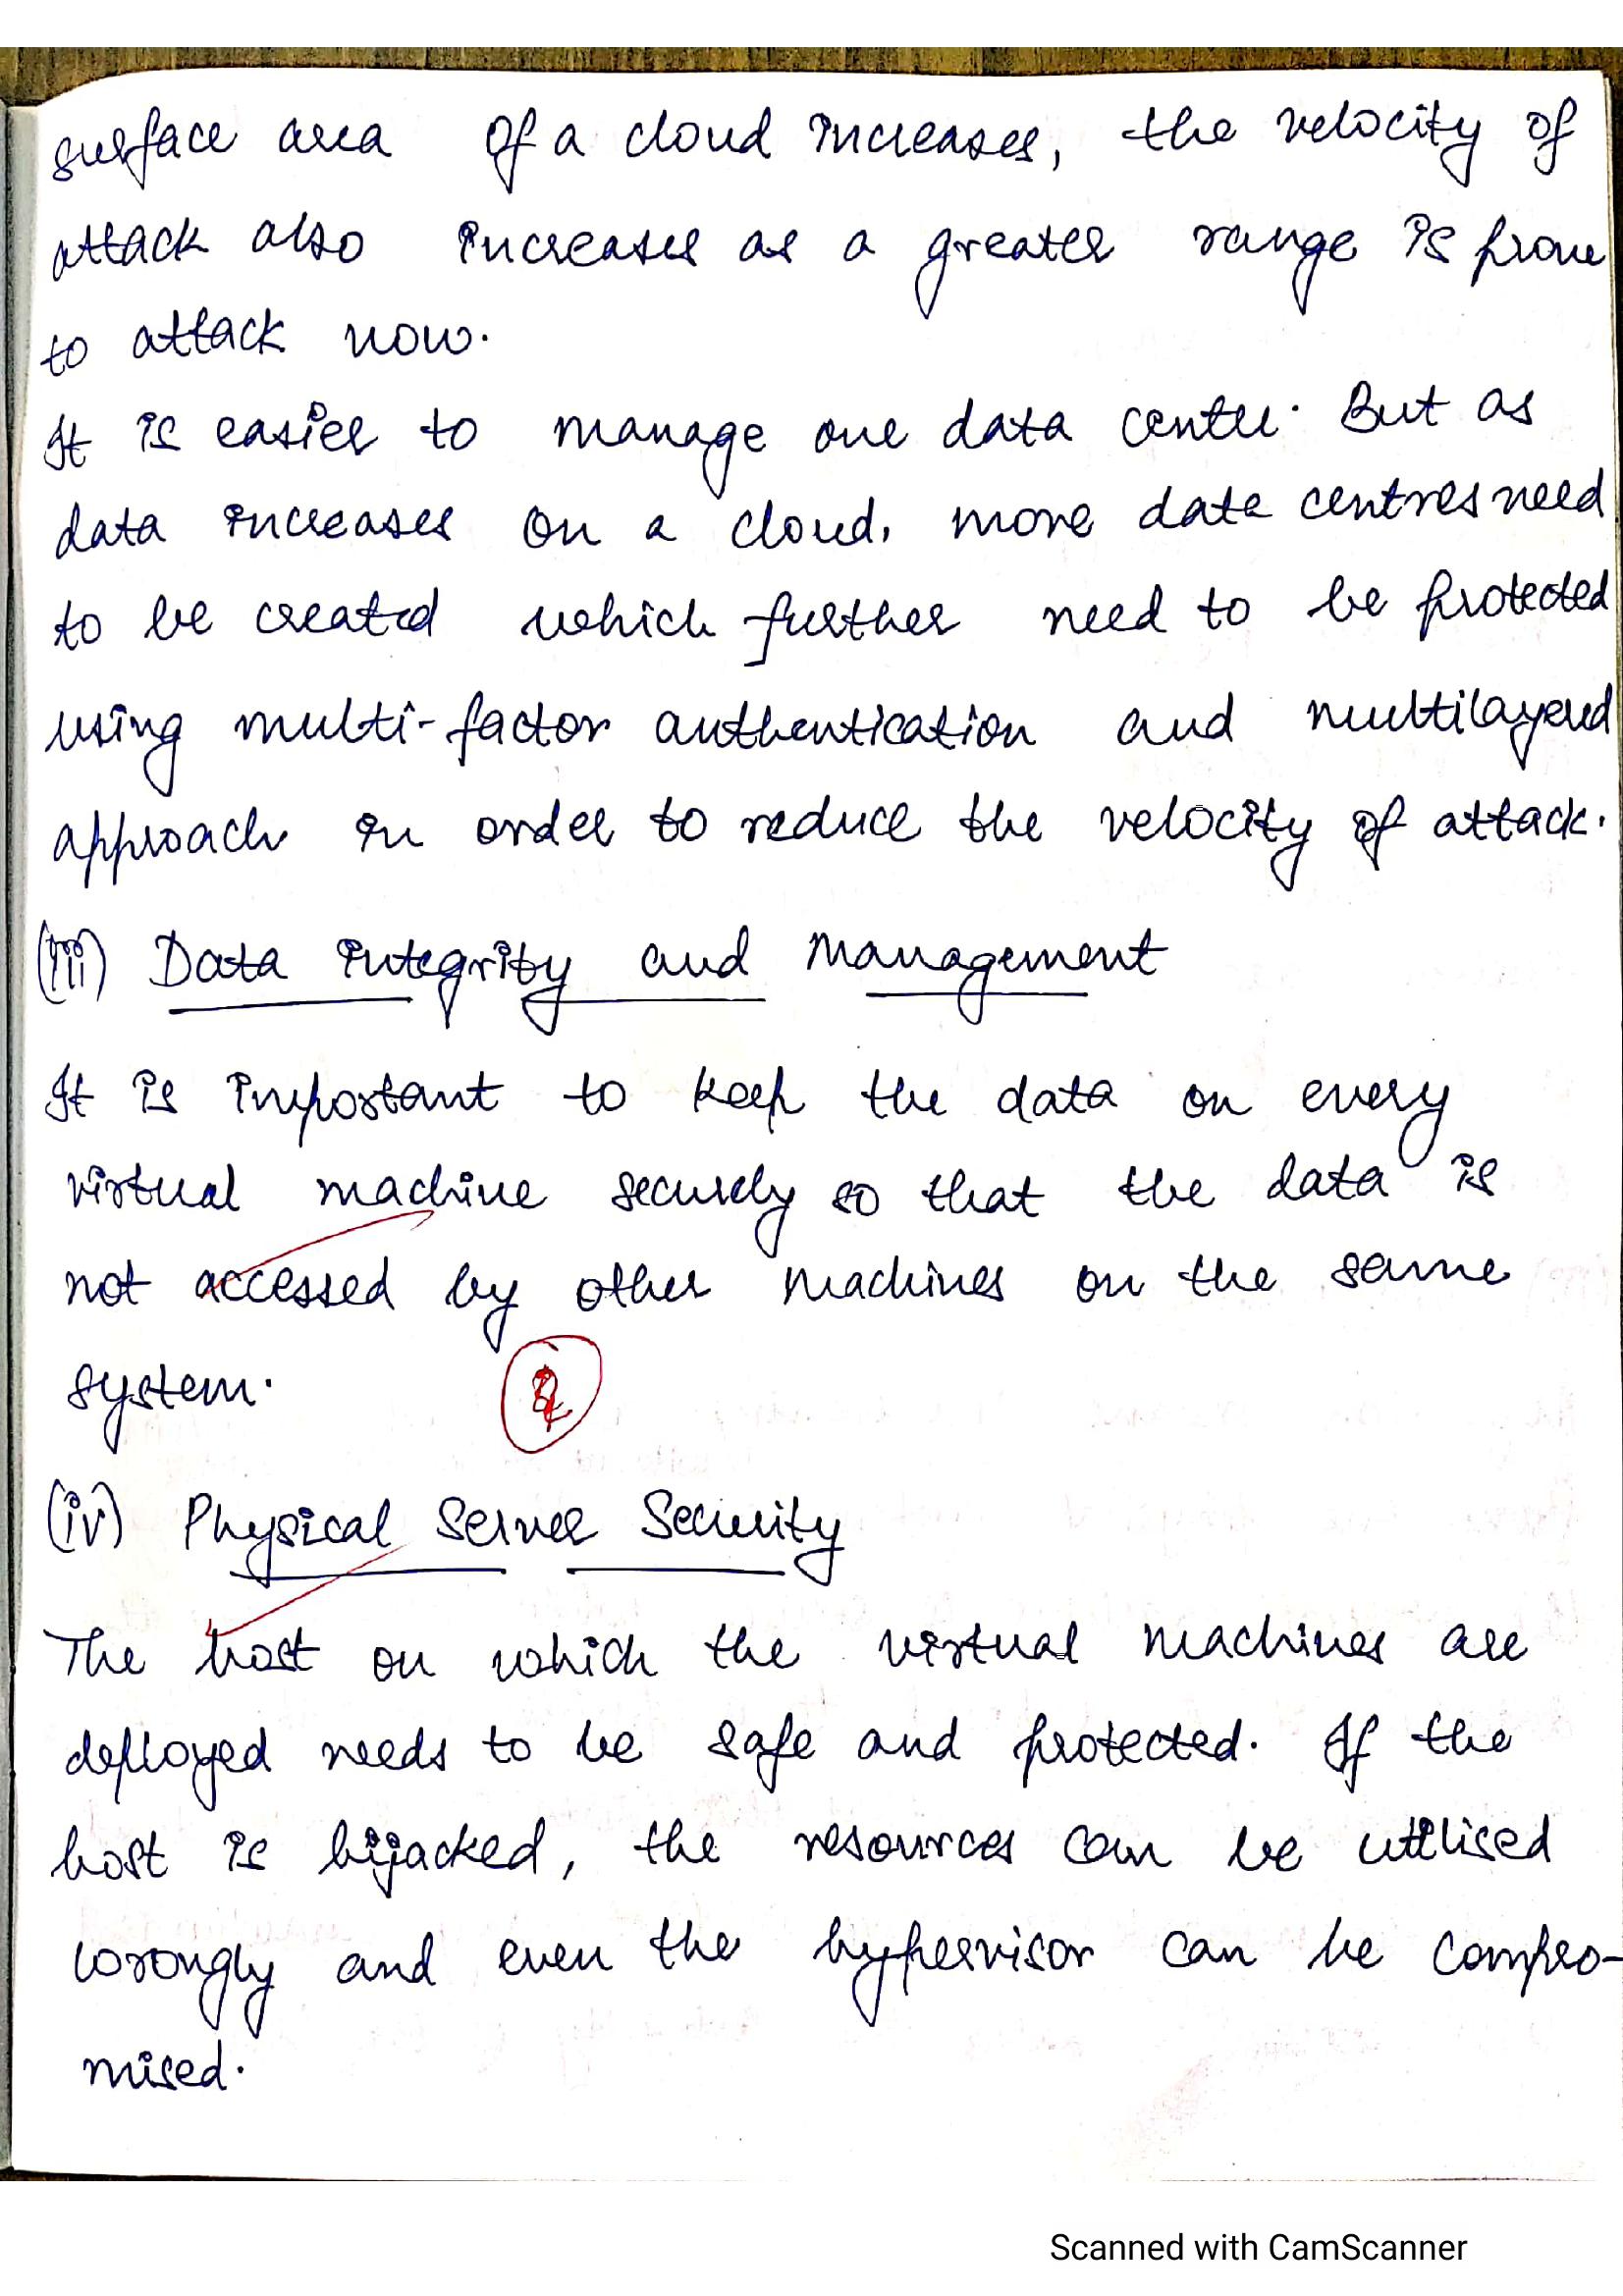 surface area of a cloud increases, the velocity of
attack also increases as a greater range is prone
to attack now.
It is easier to manage one data center. But as
data increases on a cloud, more data centres need
to be created which further need to be protected
using multi-factor authentication and multilayered
approach in order to reduce the velocity of attack.
(iii) Data integrity and Management
It is important to keep the data on every
virtual machine securely so that the data is
not accessed by other machines on the same
system.
(iv) Physical Server Security
The host on which the virtual machines are
deployed needs to be safe and protected. If the
host is hijacked, the resources can be utilised
wrongly and even the hypervisor can be compro-
mised.
Scanned with CamScanner